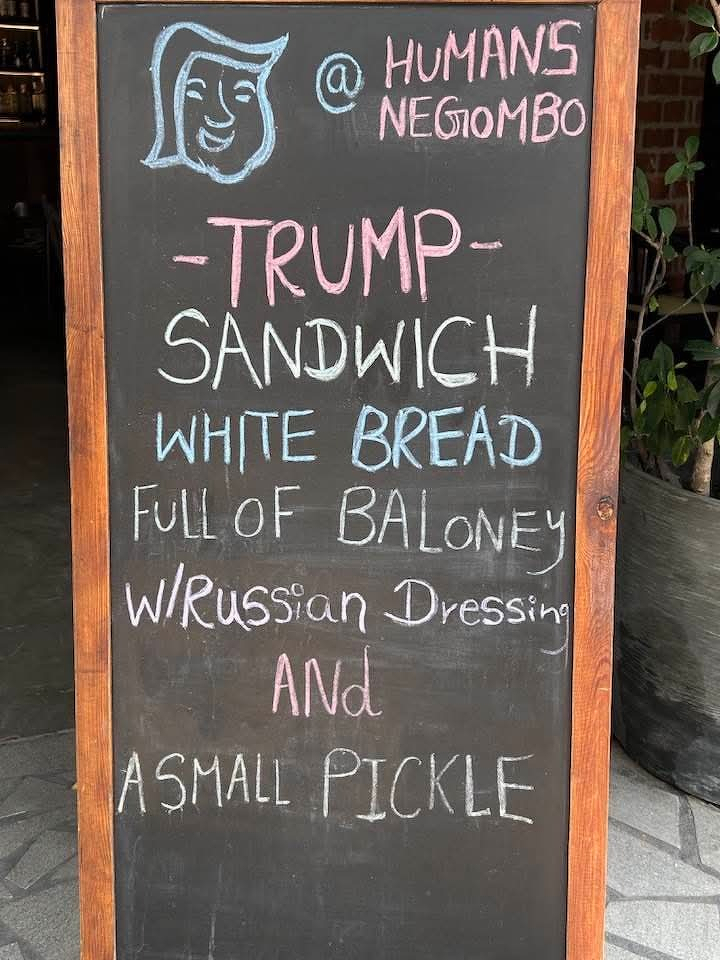 @ HUMANS
NEGOMBO
-TRUMP-
SANDWICH
WHITE BREAD
FULL OF BALONEY
W/Russian Dressing
ANd
A SMALL PICKLE